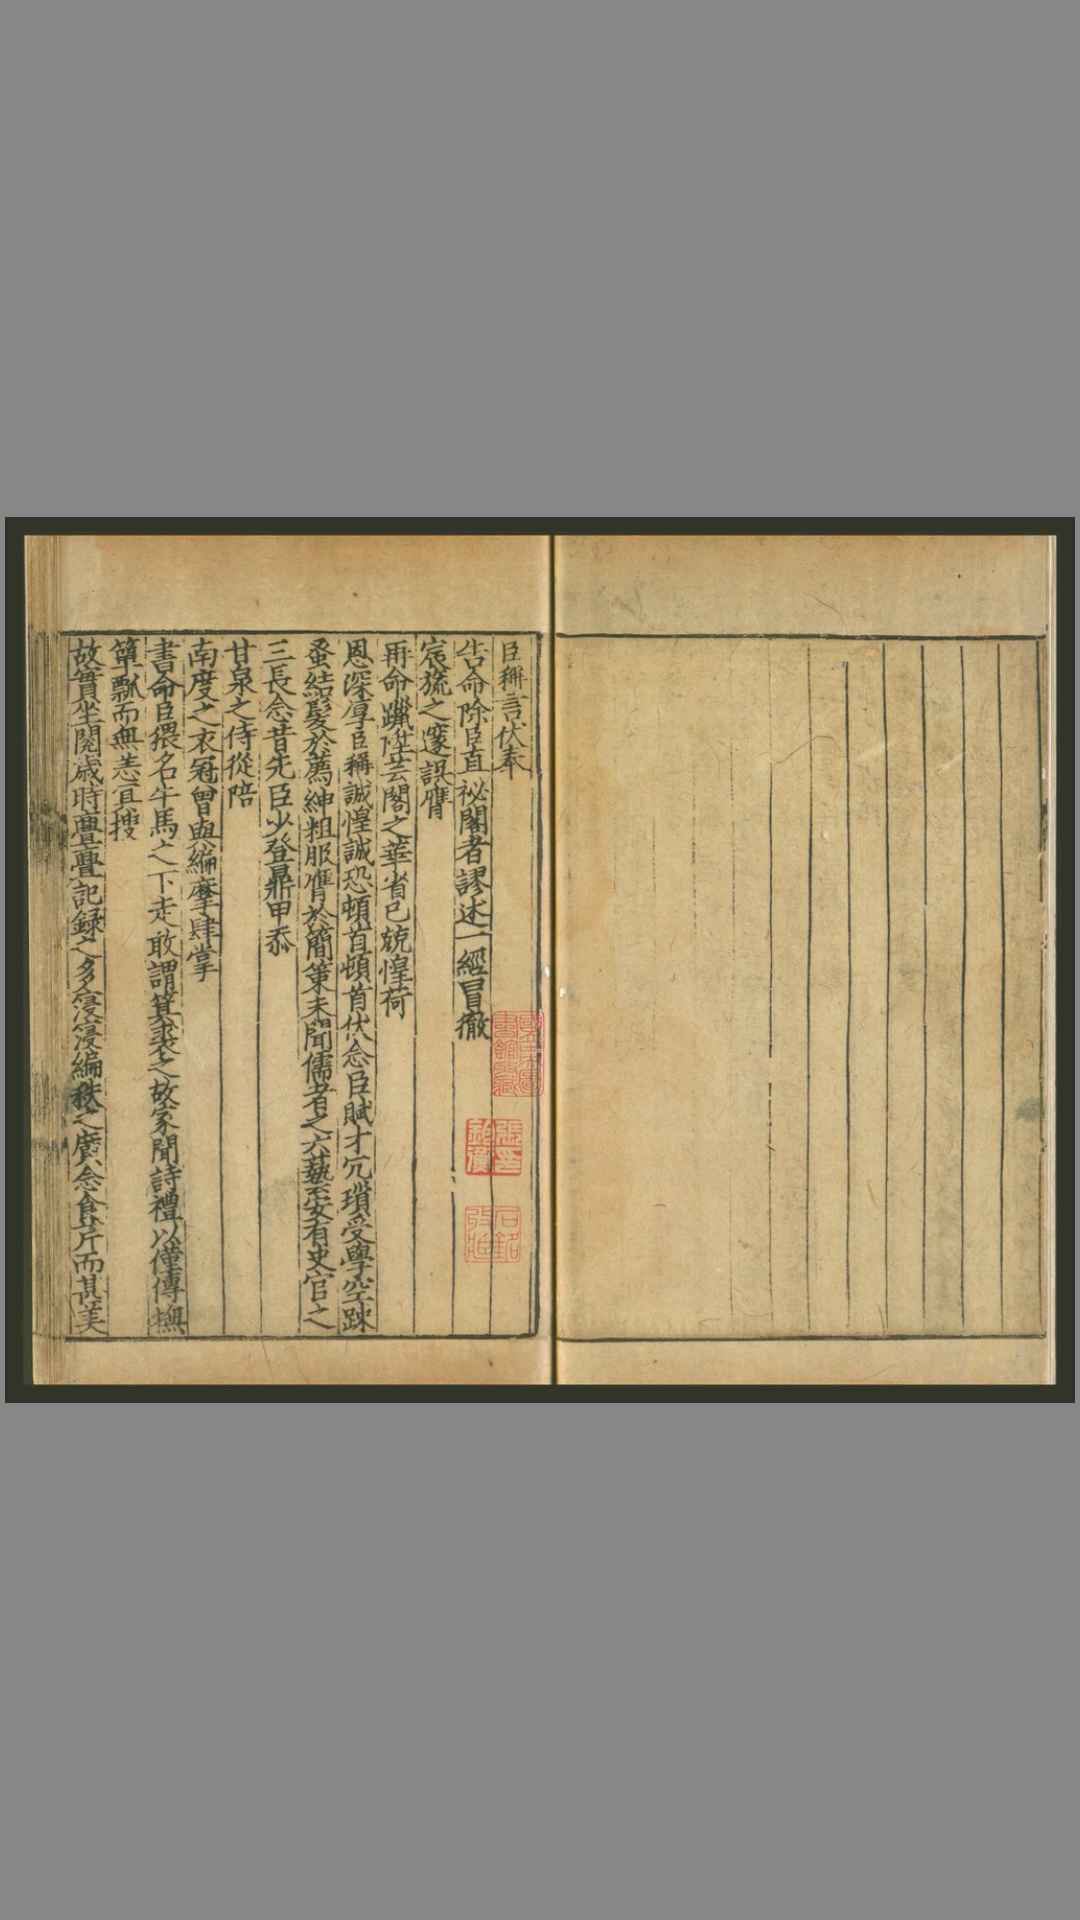 臣稱言伏奉
告命除臣直祕閣者謬述一經冒徹
宸旒之邃誤膺
再命躐陞芸閣之華省已兢惶荷
恩深厚臣稱誠惶誠恐頓首頓首伏念臣賦才冗瑣受學空踈
蚤結髮於薦紳粗服膺於簡策未聞儒者之六藝妄有史官之
三長念昔先臣少登鼎甲忝
甘泉之侍從陪
南度之衣冠曾與編摩肆掌
書命臣猥名牛馬之下走敢謂箕裘之故家聞詩禮以僅傳撫
簞瓢而無恙宜搜
故實坐閱歲時亹亹記録之多浸浸編秩之廣念食芹而甚美
張鈞衡印
石銘收藏